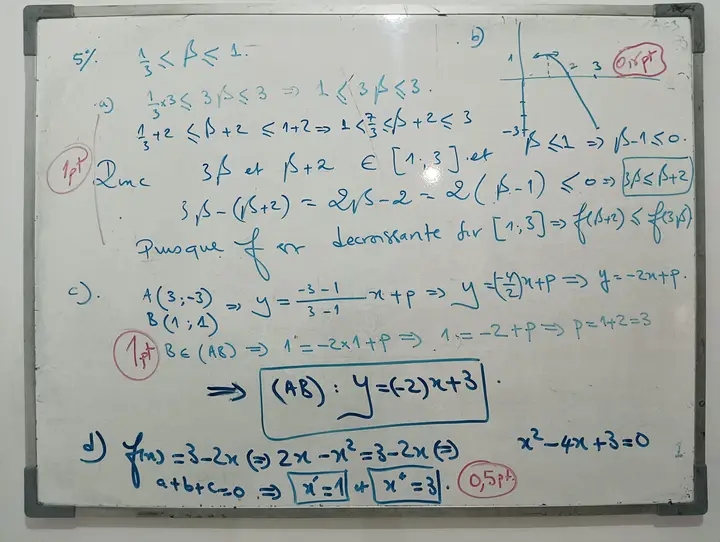 5°/. 1/3 ≤ β ≤ 1.
b) 1 2 3 -3 0,5pt
a) 1/3×3 ≤ 3β ≤ 3 ⇒ 1 ≤ 3β ≤ 3.
1/3+2 ≤ β+2 ≤ 1+2 ⇒ 1 ≤ 7/3 ≤ β+2 ≤ 3
β ≤ 1 ⇒ β-1 ≤ 0.
1pt
Donc 3β et β+2 ∈ [1,3] et
3β-(β+2) = 2β-2 = 2(β-1) ≤ 0 ⇒ 3β ≤ β+2
Puisque f est decroissante sur [1,3] ⇒ f(β+2) ≤ f(3β)
c). A(3;-3)
B(1;1) ⇒ y = (-3-1)/(3-1) x+p ⇒ y = (-4/2)x+p ⇒ y = -2x+p.
1pt B∈(AB) ⇒ 1 = -2×1+p ⇒ 1 = -2+p ⇒ p = 1+2 = 3
⇒ (AB) : y = (-2)x+3.
d) f(x) = 3-2x ⇔ 2x-x² = 3-2x ⇔ x²-4x+3=0
a+b+c=0 ⇒ x'=1 et x''=3. 0,5pt